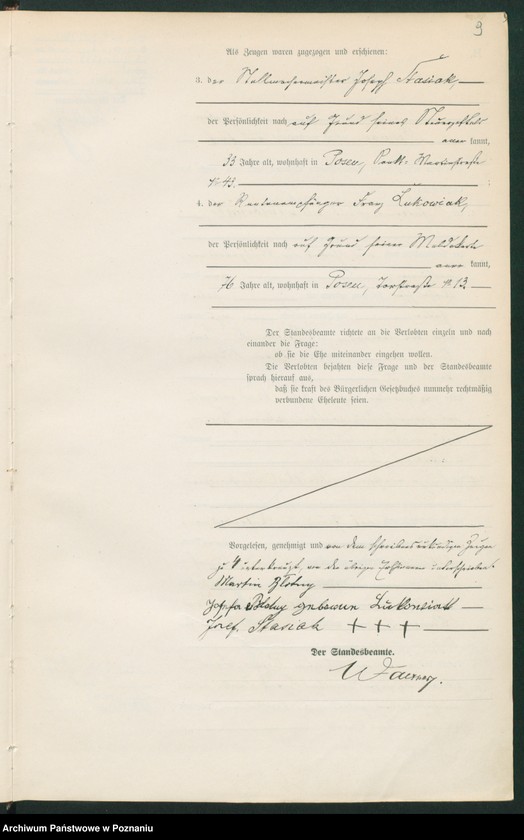 9
Als Zeugen waren zugezogen und erschienen:
3. der Stellmachermeister Joseph Stasiak,
der Persönlichkeit nach auf Grund seines
kannt,
33 Jahre alt, wohnhaft in Posen, Sankt Martinstraße
No 43.
4. der Rentenempfänger Franz Lukowiak,
der Persönlichkeit nach auf Grund seiner
kannt,
76 Jahre alt, wohnhaft in Posen, No 13
Der Standesbeamte richtete an die Verlobten einzeln und nach
einander die Frage:
ob sie die Ehe miteinander eingehen wollen.
Die Verlobten bejahten diese Frage und der Standesbeamte
sprach hierauf aus,
daß sie kraft des Bürgerlichen Gesetzbuches nunmehr rechtmäßig
verbundene Eheleute seien.
Vorgelesen, genehmigt und von dem schreibensunkundigen Zeugen
zu 4 unterkreuzt, von den übrigen unterschrieben
Martin
geborene
Josef Stasiak +++
Der Standesbeamte.
Archiwum Państwowe w Poznaniu